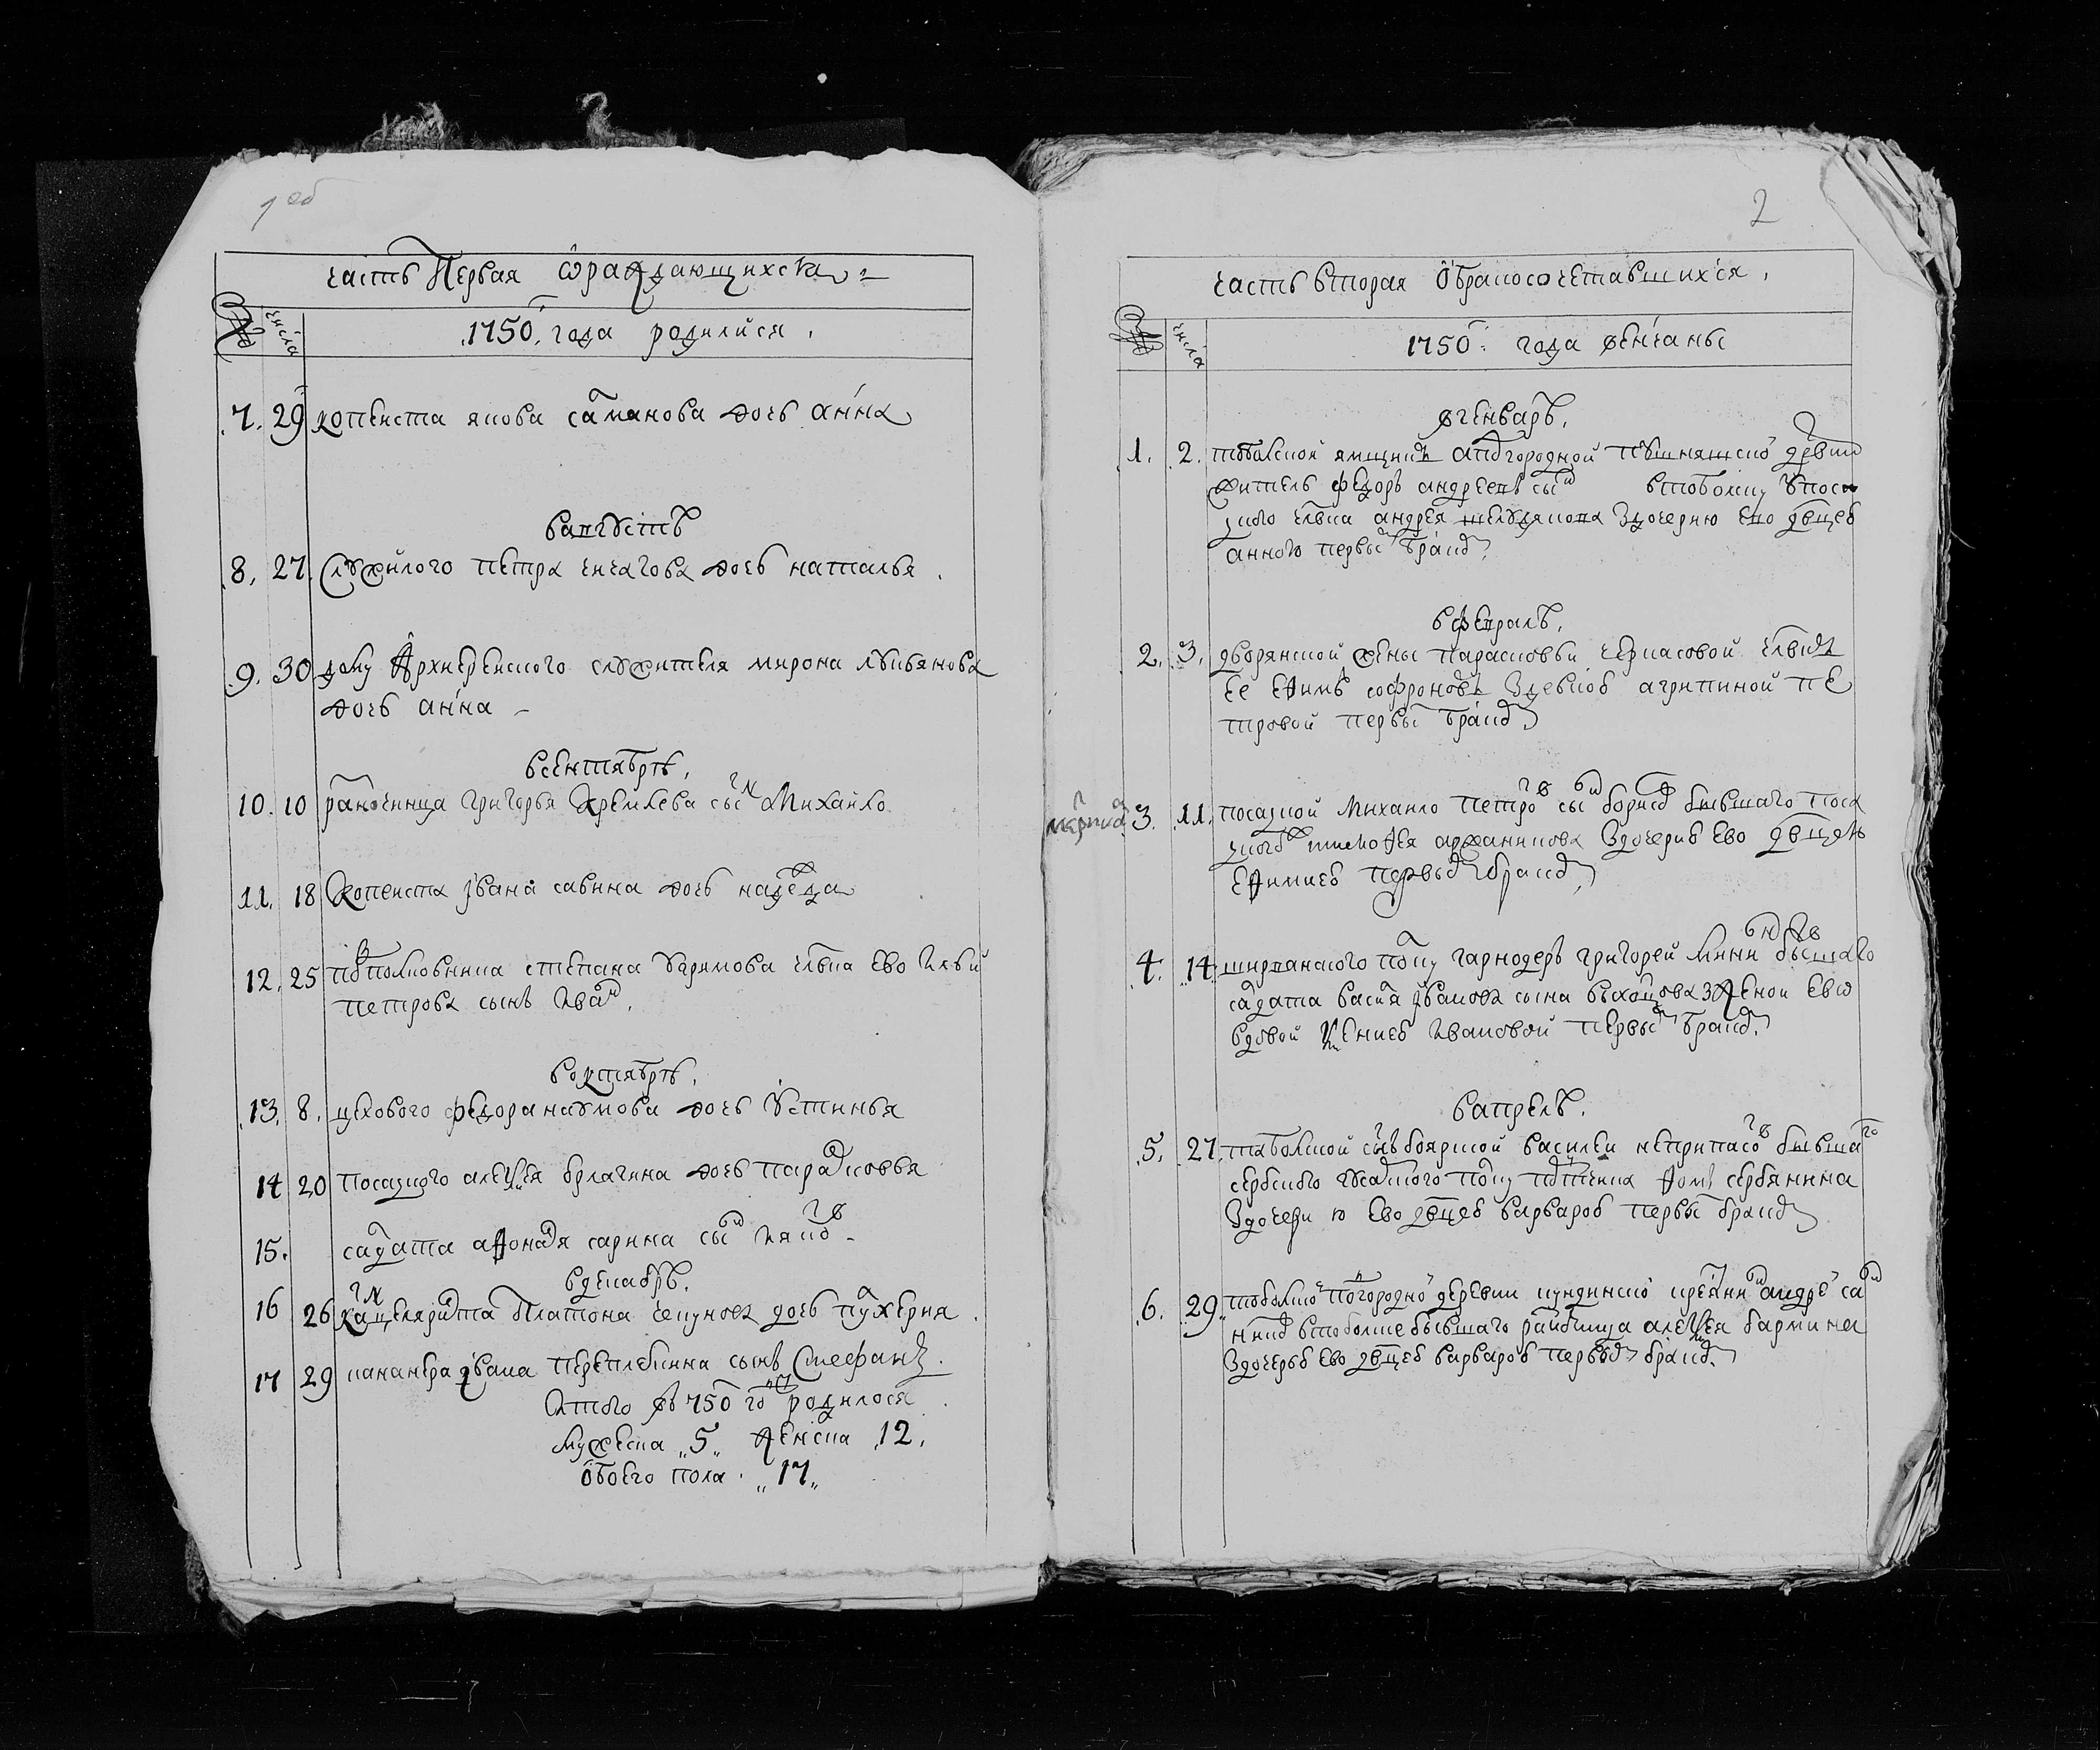 1 об
часть Первая ѡраждающихся
№ числа
1750. года родилися.
7. 29 копеиста якова саманова дочь анна
вавгустѣ
8. 27. служилого петра чичагова дочь наталья.
9. 30 дому Архиереиского служителя мирона лукьянова
дочь анна
всентябрѣ.
10. 10 разночинца григорья сынъ Михаило
11. 18 Копеиста Iвана савина дочь надежда
12. 25 подполковника степана угримова члвка ево Ильи
петрова сынъ Иванъ.
воктябрѣ.
13. 8. цехового федора наумова дочь Устинья
14 20 посадцкого алеѯея брагина дочь парасковья
15. салдата сарина сынъ Ияковъ
вдекабрѣ.
16 26 канцеляриста Платона чепунова дочь пулхерия.
17 29 Iвана переплетчина сынъ Стефанъ.
Итого въ 750 году родилося
Мужеска „5„ женска 12.
обоего пола. „17„
2
часть вторая обракосочетавшихся.
№ числа
1750. года венчаны
вгенварѣ.
1. 2. тобалской ямщикъ подгородной деревни
житель федоръ андреевъ сынъ втоболску упоса
цкого члвка андрея шелудякова здочерию ево двцею
анною первым браком
вфевралѣ.
2. 3. дворянской жены парасковьи черкасовой члвкъ
ее ефимъ софроновъ здевкою агрипиной пе
тровой первым браком
мартъ
3. 11. посацкой Михаило петровъ сынъ бывшаго поса
цкого тимофея здочерию ево двцею
ефимиею первымъ браком
4. 14. ширванского полку гарнодеръ григорей бывшаго
салдата василя Iванова сына зженою ево
вдовой Ксениею Ивановой первым браком.
вапрелѣ.
5. 27. табалской сынъ боярской василеи неприпасовъ бывшаго
сербского гусарского полку фомы сербянина
здочерью ево двцею варварою первым браком
6. 29. тоболской подгородной деревни андрей са
втоболске бывшаго алеѯея бармина
здочерью ево двцею варварою первымъ браком.